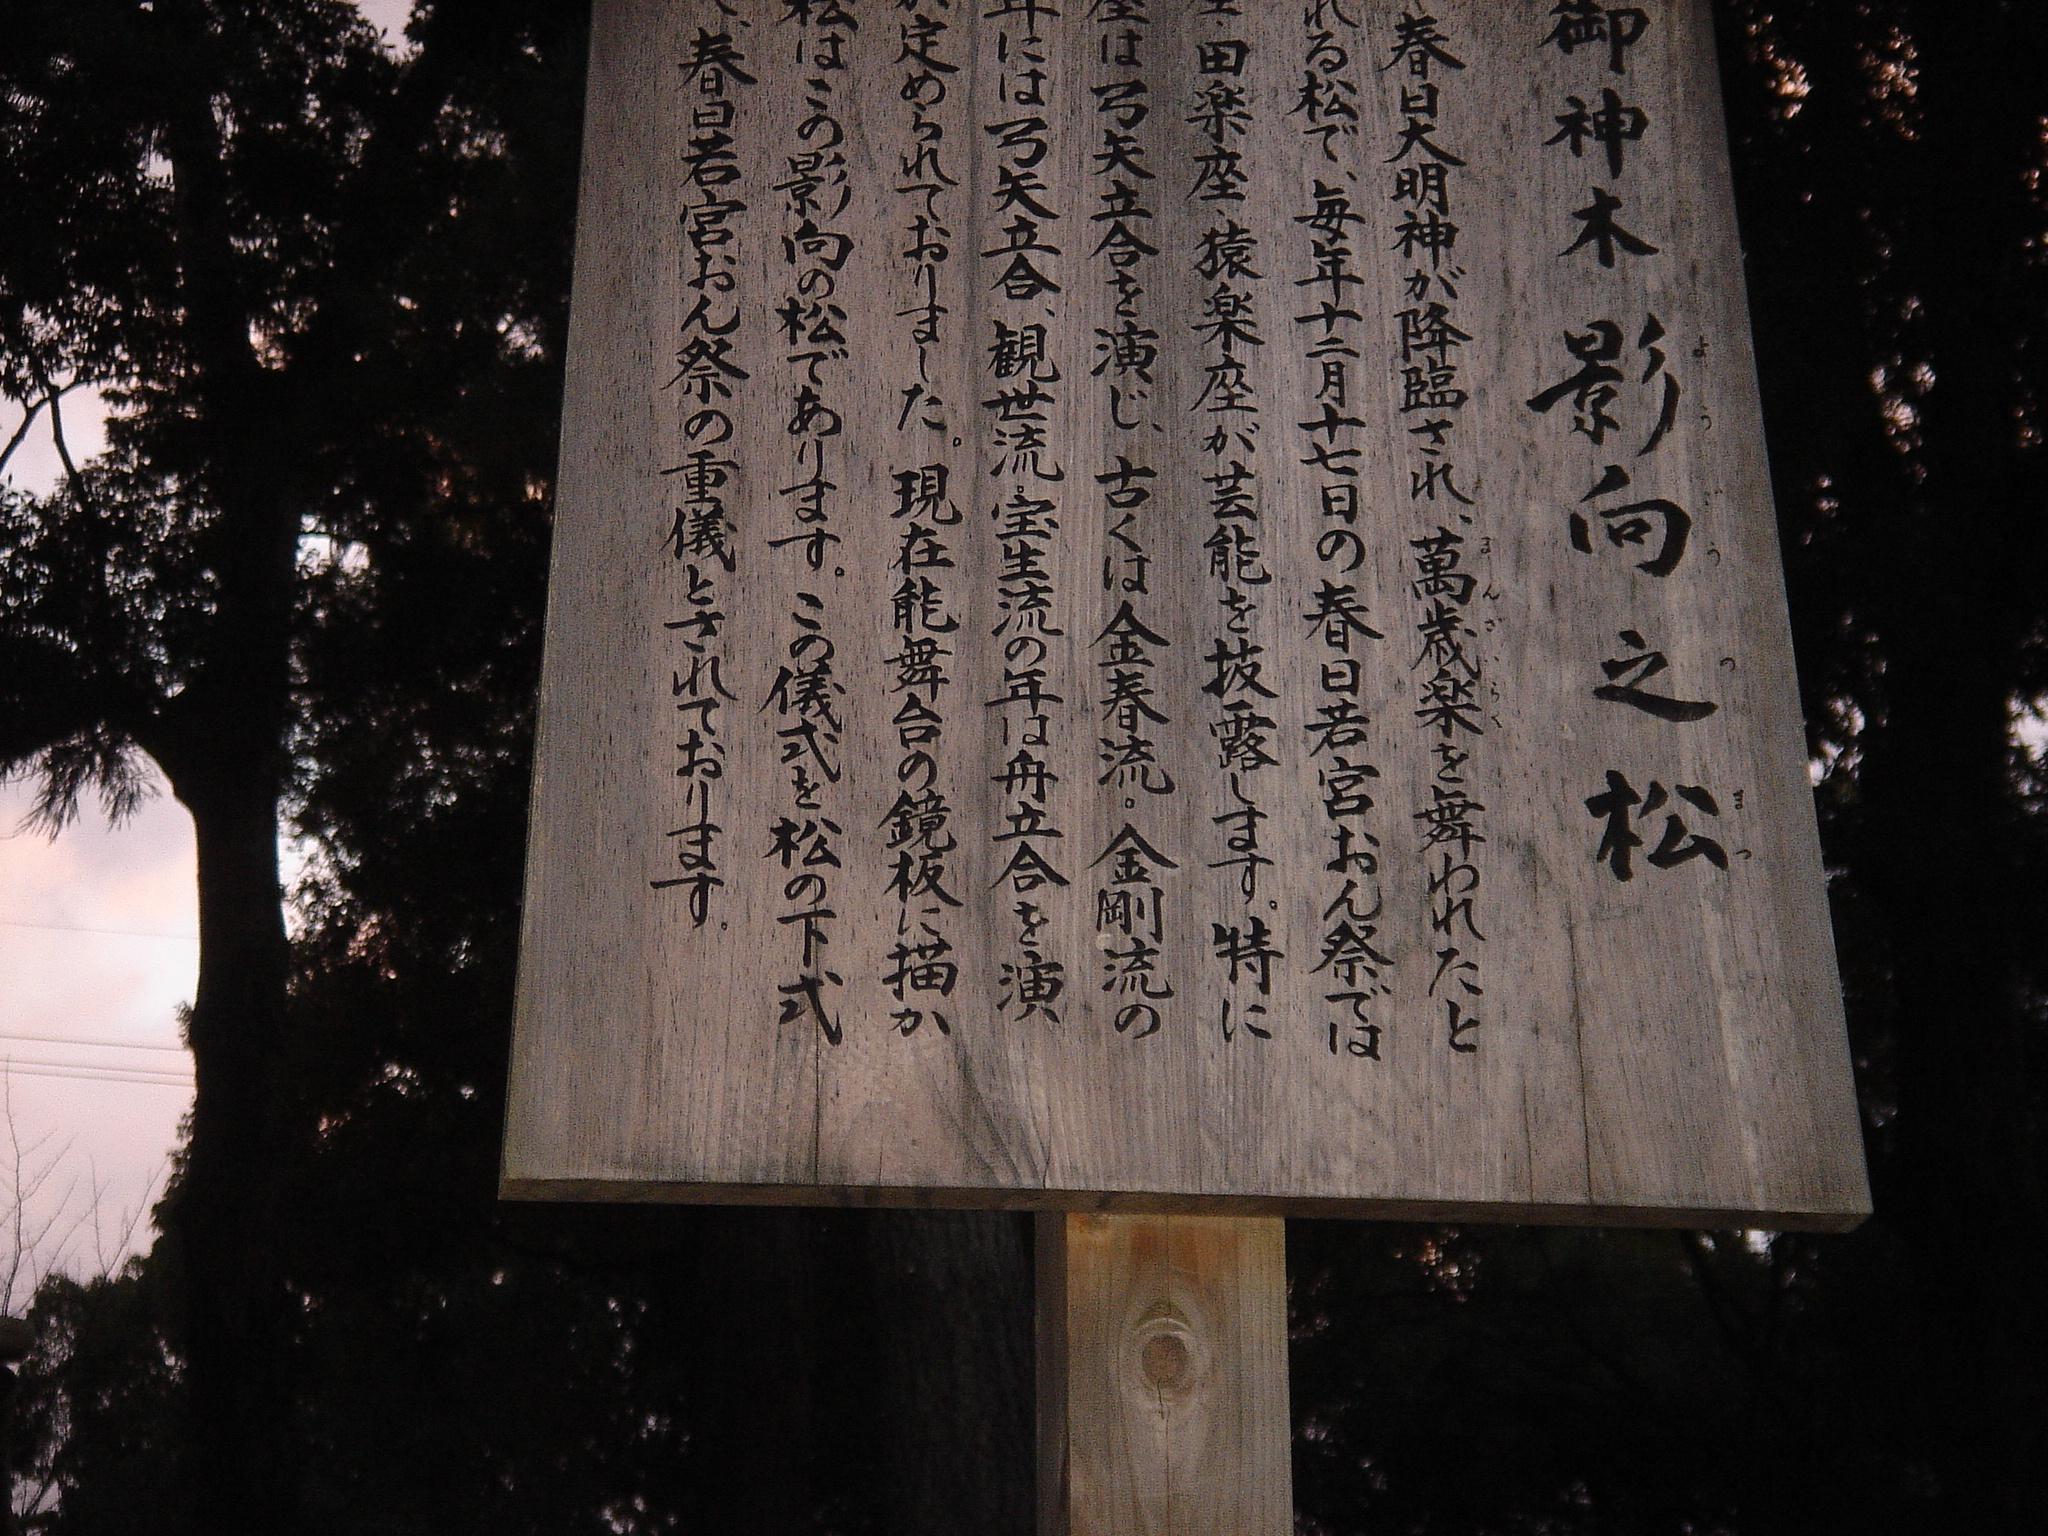 御神木影向之松
春日大明神が降臨され、萬歳楽を舞われたと
れる松で、毎年十二月十七日の春日若宮おん祭では
田楽座・猿楽座が芸能を披露します。特に
座は弓矢立合を演じ、古くは金春流。金剛流の
年には弓矢立合、観世流・宝生流の年は舟立合を演
定められておりました。現在能舞台の鏡板に描か
松はこの影向の松であります。この儀式を松の下式
春日若宮おん祭の重儀とされております。
ようごうのまつ
まんざいらく